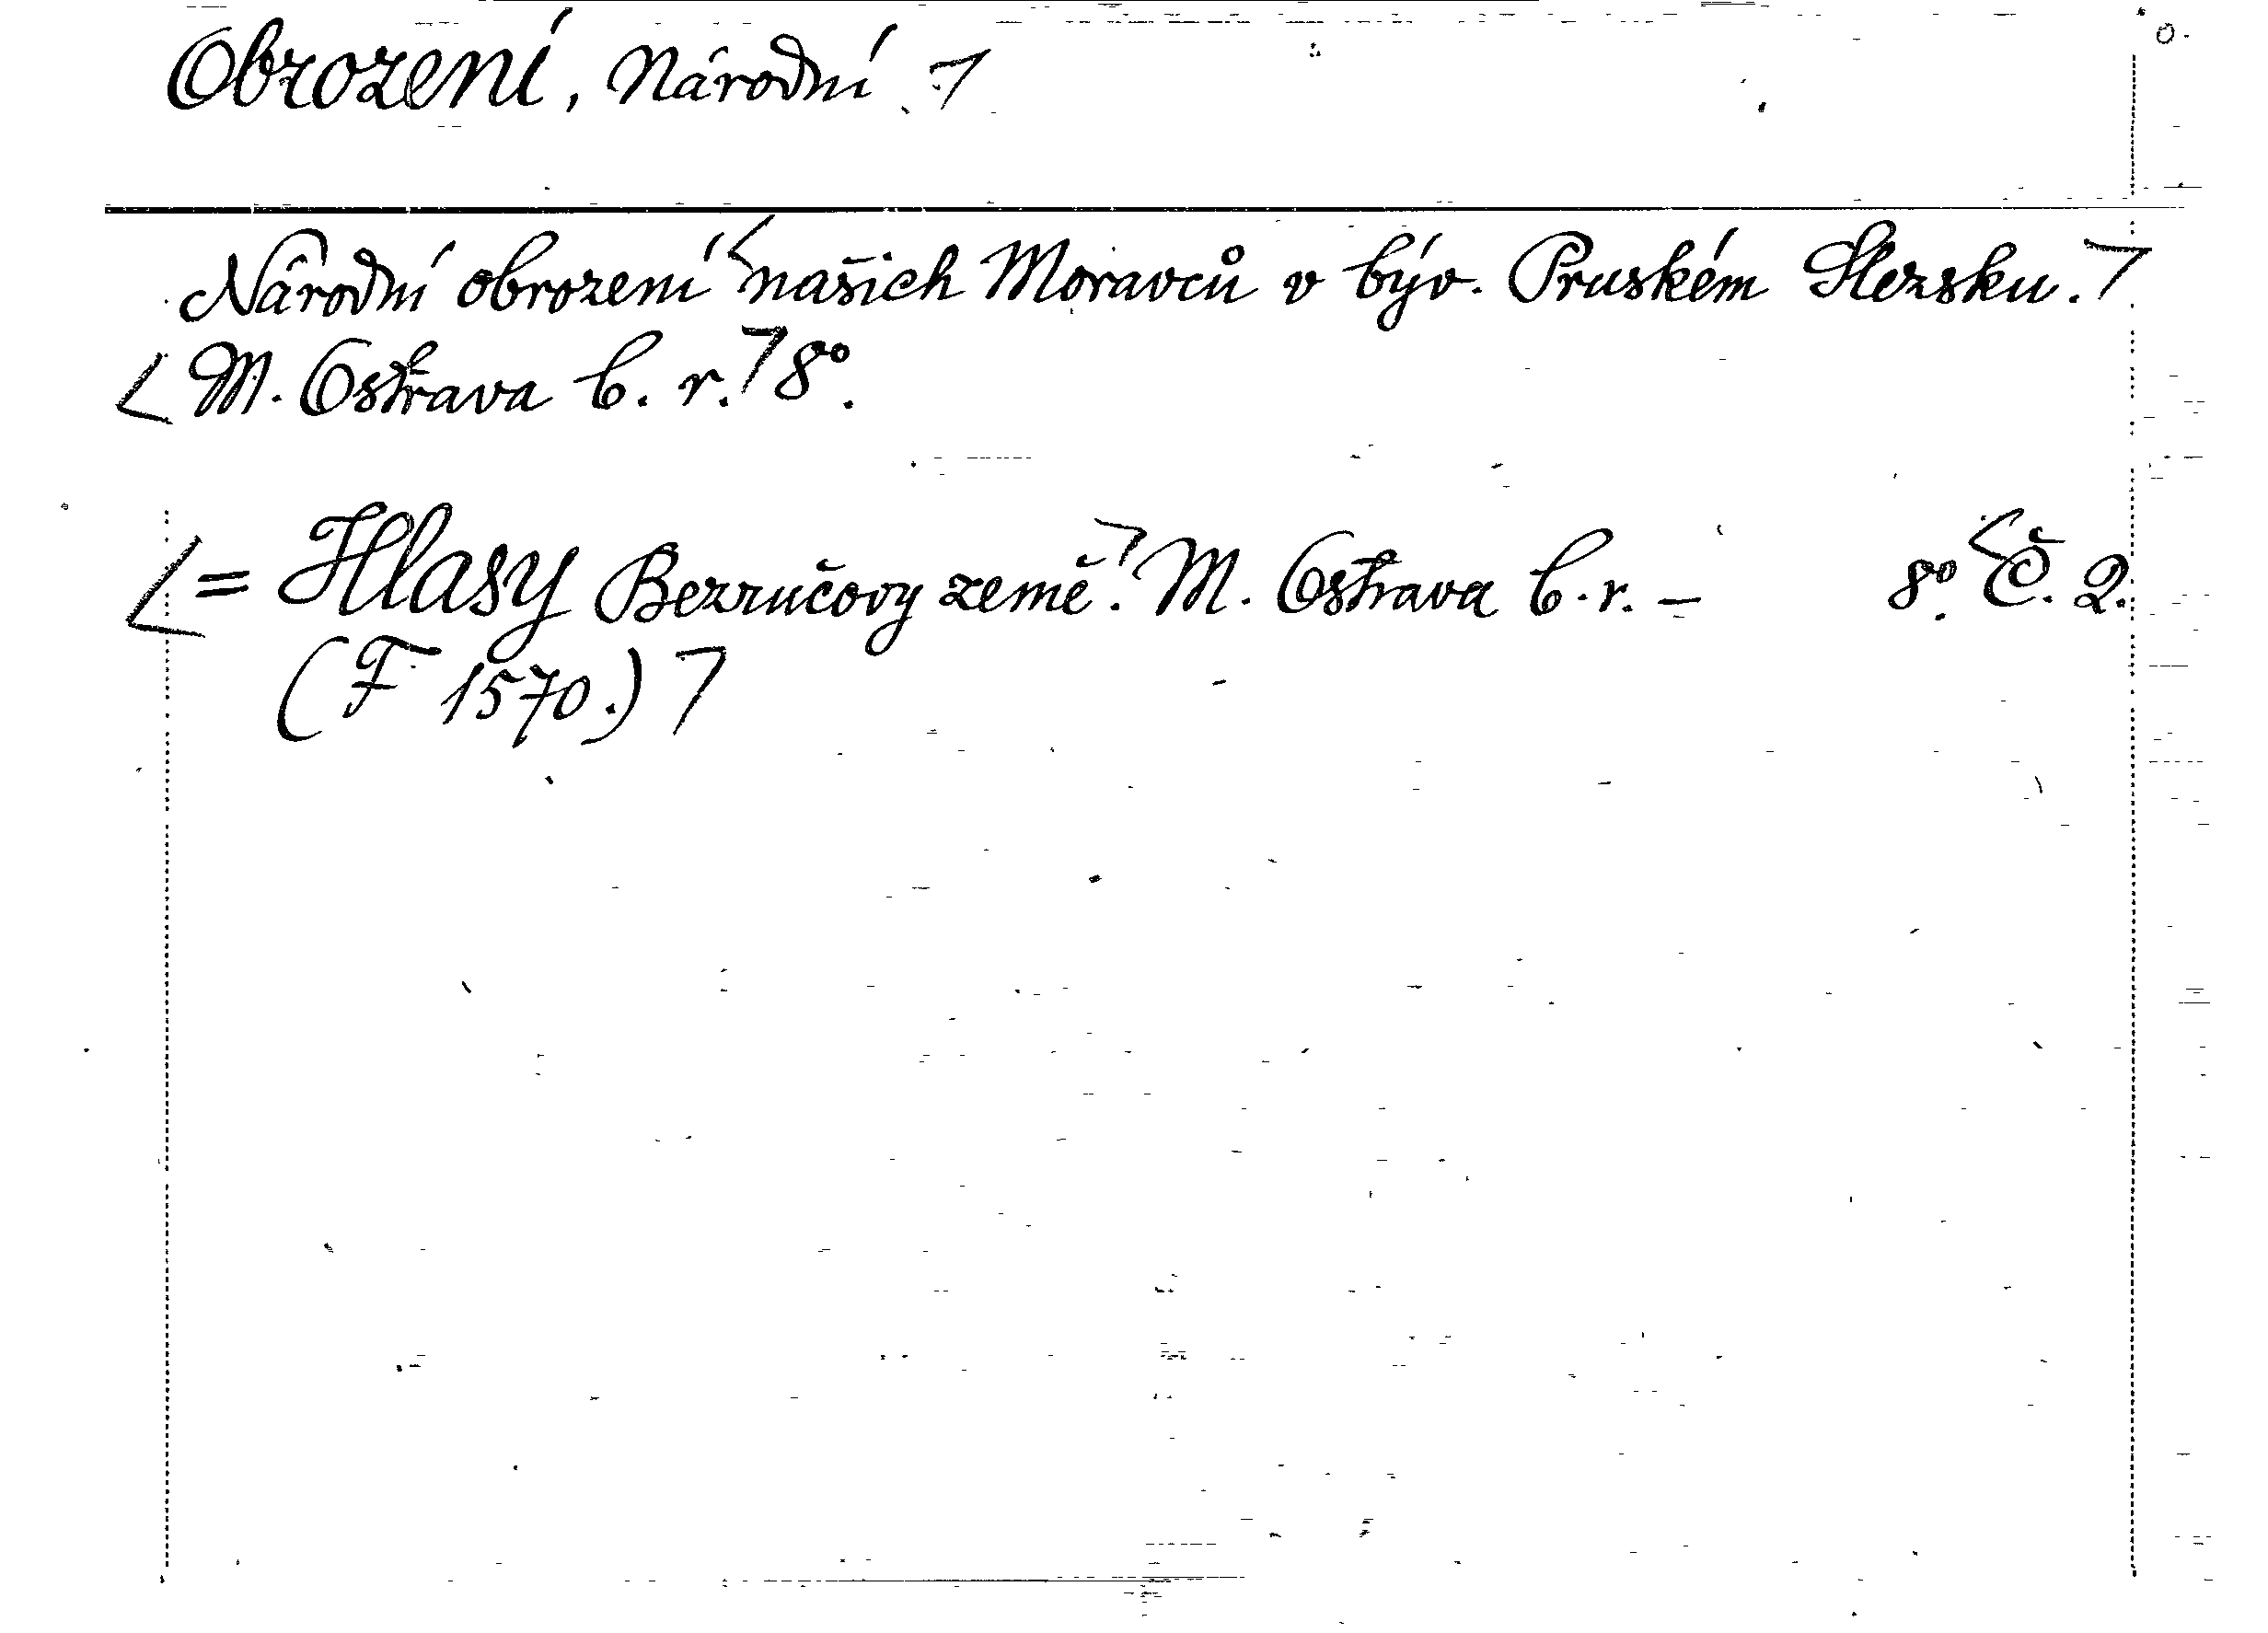 Obrození, Národní ⏋
Národní obrození <našich Moravců v býv. Pruském Slezsku.⏋
<M. Ostrava b. r.⏋ 8°.
<= Hlasy Bezručovy země.⏋ M. Ostrava b. r. – 8°. <Č. 2.
(F 1570.)⏋